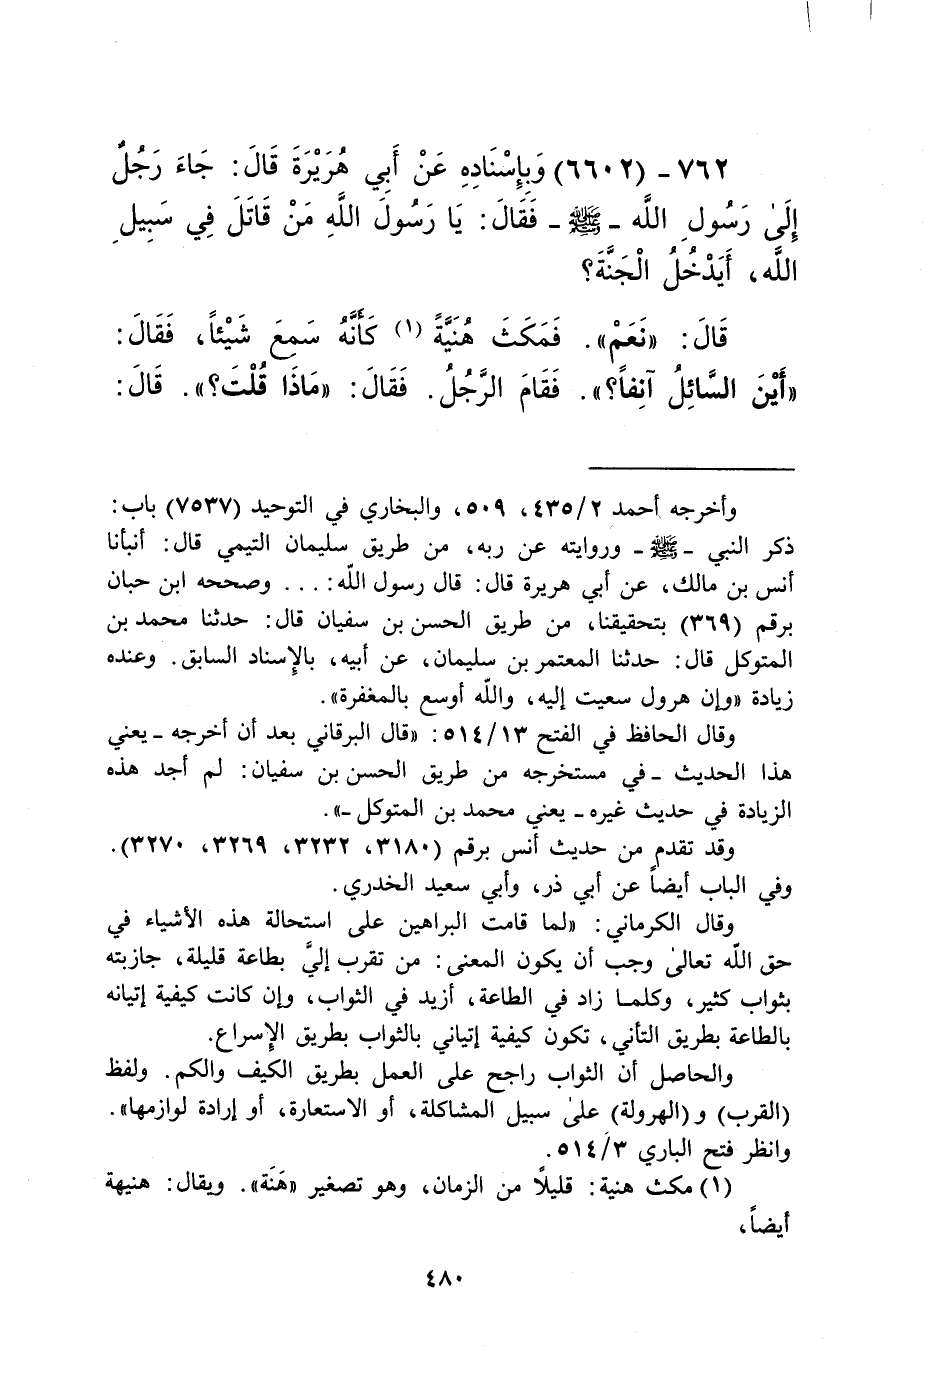 ٧٦٢ ـ (٦٦٠٢) وَبِإِسْنَادِهِ عَنْ أَبِي هُرَيْرَةَ قَالَ: جَاءَ رَجُلٌ
إِلَىٰ رَسُولِ اللَّه ـ ﷺ ـ فَقَالَ: يَا رَسُولَ اللَّهِ مَنْ قَاتَلَ فِي سَبِيلِ
اللَّه، أَيَدْخُلُ الْجَنَّةَ؟
قَالَ: «نَعَمْ». فَمَكَثَ هُنَيَّةً (١) كَأَنَّهُ سَمِعَ شَيْئاً، فَقَالَ:
«أَيْنَ السَّائِلُ آنِفاً؟». فَقَامَ الرَّجُلُ. فَقَالَ: «مَاذَا قُلْتَ؟». قَالَ:
وأخرجه أحمد ٤٣٥/٢، ٥٠٩، والبخاري في التوحيد (٧٥٣٧) باب:
ذكر النبي ـ ﷺ ـ وروايته عن ربه، من طريق سليمان التيمي قال: أنبأنا
أنس بن مالك، عن أبي هريرة قال: قال رسول اللّه: ... وصححه ابن حبان
برقم (٣٦٩) بتحقيقنا، من طريق الحسن بن سفيان قال: حدثنا محمد بن
المتوكل قال: حدثنا المعتمر بن سليمان، عن أبيه، بالإسناد السابق. وعنده
زيادة «وإن هرول سعيت إليه، واللّه أوسع بالمغفرة».
وقال الحافظ في الفتح ٥١٤/١٣: «قال البرقاني بعد أن أخرجه ـ يعني
هذا الحديث ـ في مستخرجه من طريق الحسن بن سفيان: لم أجد هذه
الزيادة في حديث غيره ـ يعني محمد بن المتوكل ـ».
وقد تقدم من حديث أنس برقم (٣١٨٠، ٣٢٣٢، ٣٢٦٩، ٣٢٧٠).
وفي الباب أيضاً عن أبي ذر، وأبي سعيد الخدري.
وقال الكرماني: «لما قامت البراهين على استحالة هذه الأشياء في
حق اللّه تعالىٰ وجب أن يكون المعنى: من تقرب إليَّ بطاعة قليلة، جازيته
بثواب كثير، وكلما زاد في الطاعة، أزيد في الثواب، وإن كانت كيفية إتيانه
بالطاعة بطريق التأني، تكون كيفية إتياني بالثواب بطريق الإسراع.
والحاصل أن الثواب راجح على العمل بطريق الكيف والكم. ولفظ
(القرب) و (الهرولة) علىٰ سبيل المشاكلة، أو الاستعارة، أو إرادة لوازمها».
وانظر فتح الباري ٥١٤/٣.
(١) مكث هنية: قليلاً من الزمان، وهو تصغير «هَنَة». ويقال: هنيهة
أيضاً،
٤٨٠